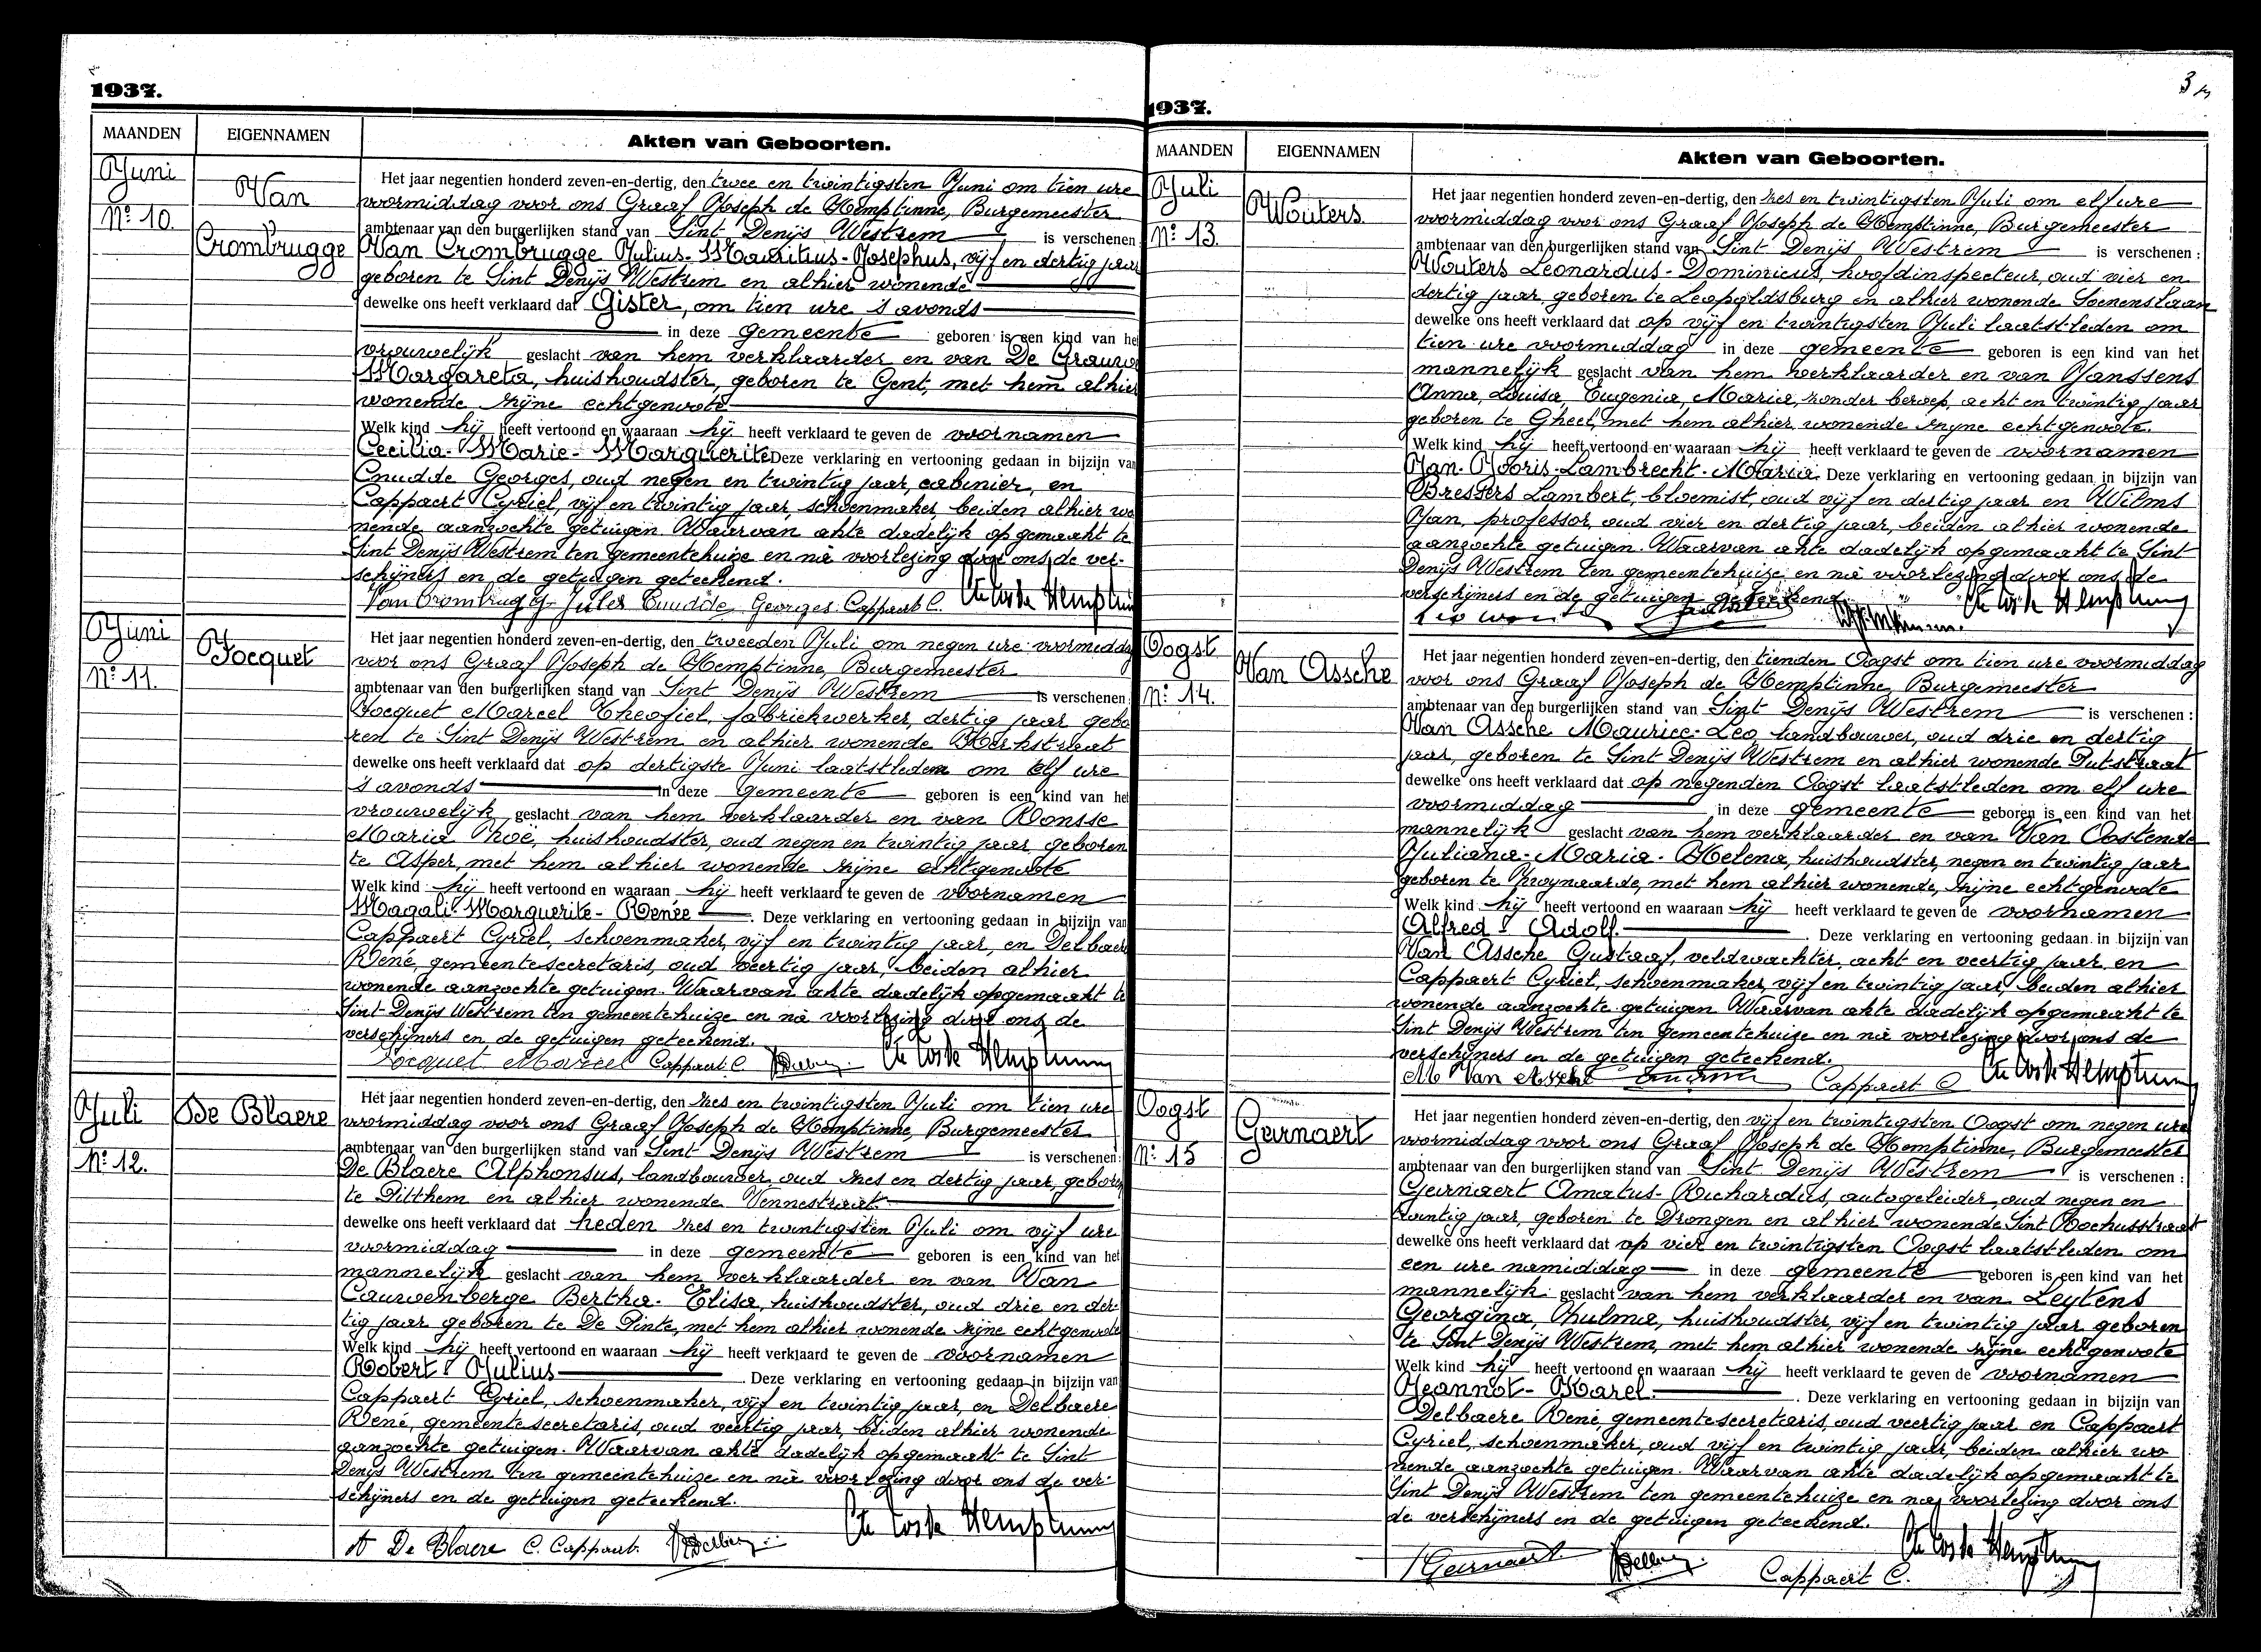 1937.
MAANDEN
EIGENNAMEN
Akten van Geboorten.
Juni
Nº 10.
Van
Crombrugge
Het jaar negentien honderd zeven-en-dertig, den twee en twintigsten Juni om tien ure
voormiddag voor ons Graaf Joseph de Hemptinne, Burgemeester
ambtenaar van den burgerlijken stand van Sint Denijs Westrem is verschenen:
Van Crombrugge Julius-Mauritius-Josephus, vijf en dertig jaar
geboren te Sint Denijs Westrem en alhier wonende
dewelke ons heeft verklaard dat Gister, om tien ure 's avonds
in deze gemeente geboren is een kind van het
vrouwelijk geslacht van hem verklaarder en van De Grauwe
Margareta, huishoudster, geboren te Gent, met hem alhier
wonende zijne echtgenoote
Welk kind hij heeft vertoond en waaraan hij heeft verklaard te geven de voornamen
Cecilia-Marie-Marguerite Deze verklaring en vertooning gedaan in bijzijn van
Cnudde Georges, oud negen en twintig jaar, cabinier, en
Cappaert Cyriel, vijf en twintig jaar, schoenmaker, beiden alhier wo
nende aanzochte getuigen. Waarvan akte dadelijk opgemaakt te
Sint Denijs Westrem ten gemeentehuize en nà voorlezing door ons de ver-
schijners en de getuigen geteekend.
Van Crombrugge Jules Cnudde Georges Cappaert C.
Juni
Nº 11.
Jocquet
Het jaar negentien honderd zeven-en-dertig, den tweeden Juli om negen ure voormiddag
voor ons Graaf Joseph de Hemptinne, Burgemeester
ambtenaar van den burgerlijken stand van Sint Denijs Westrem is verschenen:
Jocquet Marcel Theofiel, fabriekwerker, dertig jaar gebo
ren te Sint Denijs Westrem en alhier wonende Kerkstraat
dewelke ons heeft verklaard dat op dertigste Juni laatstleden om elf ure
's avonds in deze gemeente geboren is een kind van het
vrouwelijk geslacht van hem verklaarder en van Ronsse
Maria Zoë, huishoudster, oud negen en twintig jaar, geboren
te Asper, met hem alhier wonende zijne echtgenoote
Welk kind hij heeft vertoond en waaraan hij heeft verklaard te geven de voornamen
Magali-Marguerite-Renée. Deze verklaring en vertooning gedaan in bijzijn van
Cappaert Cyriel, schoenmaker, vijf en twintig jaar, en Delbaere
René, gemeentesecretaris, oud veertig jaar, beiden alhier
wonende aanzochte getuigen. Waarvan akte dadelijk opgemaakt te
Sint Denijs Westrem ten gemeentehuize en nà voorlezing door ons de
verschijners en de getuigen geteekend.
Jocquet Marcel Cappaert C
Juli
Nº 12.
De Blaere
Het jaar negentien honderd zeven-en-dertig, den zes en twintigsten Juli om tien ure
voormiddag voor ons Graaf Joseph de Hemptinne, Burgemeester
ambtenaar van den burgerlijken stand van Sint Denijs Westrem is verschenen:
De Blaere Alphonsus, landbouwer, oud zes en dertig jaar, geboren
te Pitthem en alhier wonende Vennestraat
dewelke ons heeft verklaard dat heden zes en twintigsten Juli om vijf ure
voormiddag in deze gemeente geboren is een kind van het
mannelijk geslacht van hem verklaarder en van Van
Cauwenberge Bertha-Elisa, huishoudster, oud drie en der-
tig jaar geboren te De Pinte, met hem alhier wonende zijne echtgenoote
Welk kind hij heeft vertoond en waaraan hij heeft verklaard te geven de voornamen
Robert-Julius. Deze verklaring en vertooning gedaan in bijzijn van
Cappaert Cyriel, schoenmaker, vijf en twintig jaar, en Delbaere
René, gemeentesecretaris, oud veertig jaar, beiden alhier wonende
aanzochte getuigen. Waarvan akte dadelijk opgemaakt te Sint
Denijs Westrem ten gemeentehuize en nà voorlezing door ons de ver-
schijners en de getuigen geteekend.
A De Blaere C. Cappaert.
3
1937.
MAANDEN
EIGENNAMEN
Akten van Geboorten.
Juli
Nº 13.
Wouters
Het jaar negentien honderd zeven-en-dertig, den zes en twintigsten Juli om elf ure
voormiddag voor ons Graaf Joseph de Hemptinne, Burgemeester
ambtenaar van den burgerlijken stand van Sint Denijs Westrem is verschenen:
Wouters Leonardus-Dominicus, hoofdinspecteur, oud vier en
dertig jaar, geboren te Leopoldsburg en alhier wonende Soenenslaan
dewelke ons heeft verklaard dat op vijf en twintigsten Juli laatstleden om
tien ure voormiddag in deze gemeente geboren is een kind van het
mannelijk geslacht van hem verklaarder en van Janssens
Anna, Louisa, Eugenia, Maria, zonder beroep, acht en twintig jaar
geboren te Gheel, met hem alhier wonende zijne echtgenoote.
Welk kind hij heeft vertoond en waaraan hij heeft verklaard te geven de voornamen
Jan-Joris-Lambrecht-Maria. Deze verklaring en vertooning gedaan in bijzijn van
Bressers Lambert, bloemist, oud vijf en dertig jaar en Wilms
Jan, professor, oud vier en dertig jaar, beiden alhier wonende
aanzochte getuigen. Waarvan akte dadelijk opgemaakt te Sint
Denijs Westrem ten gemeentehuize en nà voorlezing door ons de
verschijners en de getuigen geteekend.
Oogst
Nº 14.
Van Assche
Het jaar negentien honderd zeven-en-dertig, den tienden Oogst om tien ure voormiddag
voor ons Graaf Joseph de Hemptinne, Burgemeester
ambtenaar van den burgerlijken stand van Sint Denijs Westrem is verschenen:
Van Assche Maurice-Leo, landbouwer, oud drie en dertig
jaar, geboren te Sint Denijs Westrem en alhier wonende Putstraat
dewelke ons heeft verklaard dat op negenden Oogst laatstleden om elf ure
voormiddag in deze gemeente geboren is een kind van het
mannelijk geslacht van hem verklaarder en van Van Oostende
Juliana-Maria-Helena, huishoudster, negen en twintig jaar
geboren te Zwijnaarde, met hem alhier wonende, zijne echtgenoote
Welk kind hij heeft vertoond en waaraan hij heeft verklaard te geven de voornamen
Alfred-Adolf. Deze verklaring en vertooning gedaan in bijzijn van
Van Assche Gustaaf, veldwachter, acht en veertig jaar en
Cappaert Cyriel, schoenmaker, vijf en twintig jaar, beiden alhier
wonende aanzochte getuigen. Waarvan akte dadelijk opgemaakt te
Sint Denijs Westrem ten gemeentehuize en nà voorlezing door ons de
verschijners en de getuigen geteekend.
M Van Assche Cappaert C
Oogst
Nº 15
Geirnaert
Het jaar negentien honderd zeven-en-dertig, den vijf en twintigsten Oogst om negen ure
voormiddag voor ons Graaf Joseph de Hemptinne, Burgemeester
ambtenaar van den burgerlijken stand van Sint Denijs Westrem is verschenen:
Geirnaert Amatus-Richardus, autogeleider, oud negen en
twintig jaar, geboren te Drongen en alhier wonende Sint Rochusstraat
dewelke ons heeft verklaard dat op vier en twintigsten Oogst laatstleden om
een ure namiddag in deze gemeente geboren is een kind van het
mannelijk geslacht van hem verklaarder en van Leytens
Georgina, Zhulma, huishoudster, vijf en twintig jaar geboren
te Sint Denijs Westrem, met hem alhier wonende zijne echtgenoote
Welk kind hij heeft vertoond en waaraan hij heeft verklaard te geven de voornamen
Jeannot-Karel. Deze verklaring en vertooning gedaan in bijzijn van
Delbaere René, gemeentesecretaris, oud veertig jaar en Cappaert
Cyriel, schoenmaker, oud vijf en twintig jaar, beiden alhier wo
nende aanzochte getuigen. Waarvan akte dadelijk opgemaakt te
Sint Denijs Westrem ten gemeentehuize en na voorlezing door ons
de verschijners en de getuigen geteekend.
Geirnaert Cappaert C.